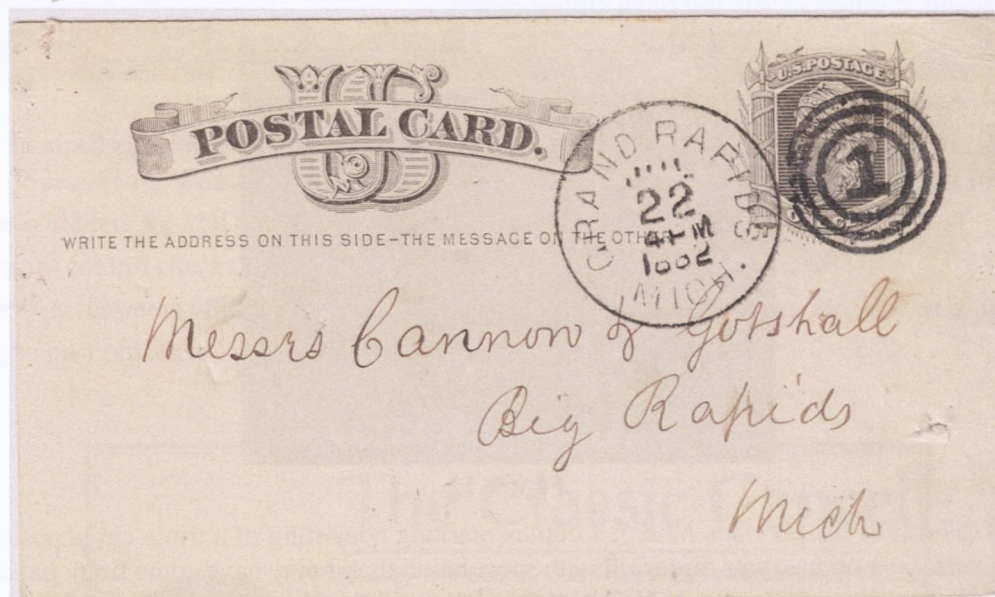 US
POSTAL CARD.
U.S. POSTAGE
WRITE THE ADDRESS ON THIS SIDE-THE MESSAGE ON THE OTHER
GRAND RAPIDS
22
4 PM
1882
MICH.
1
Messrs Cannon & Gotshall
Big Rapids
Mich